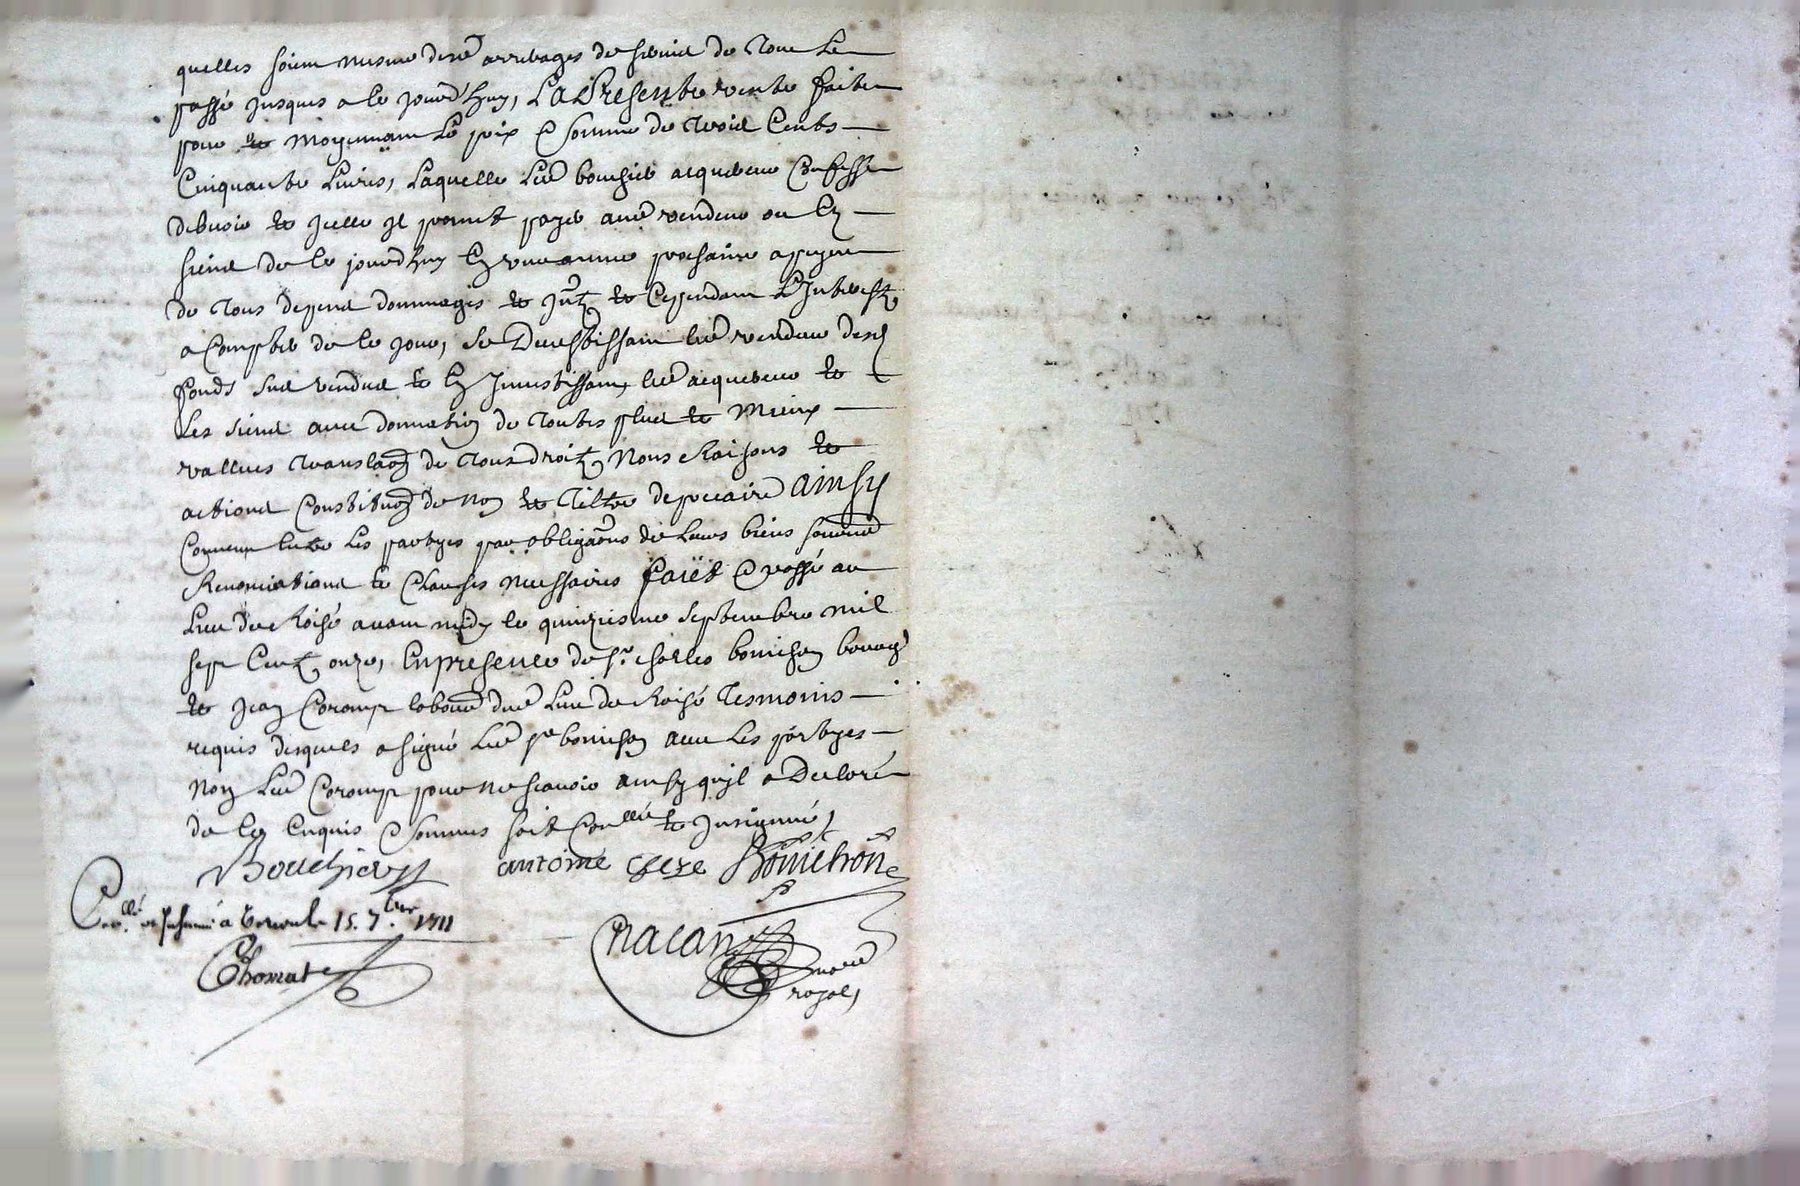 quelles soient mesme des arrerages de servis de tout le
passé jusques a ce jourd'huy, La Presente vente faite
pour et moyennant le prix & somme de trois Cents
Cinquante livres, laquelle led bouchier acquereur Confesse
debvoir et jcelle jl promet payer aud vendeur ou les
siens de ce jourdhuy en une année prochaine a peyne
de tous depens dommages et jntz et Cependant L'Interestz
a Compter de ce jour, se Devestissant led vendeur desd
fonds sus vendus et en Jnvestissant led acquereur et
Les siens avec donnation de toutes plus et mieux
vallues translaon de tous droitz noms Raisons et
actions Constituon de nom et tiltre de precaire ainsy
Convenu entre les partyes par obligaons de leurs biens
Renonciations et Clauses necessaires faict & passé au
lieu de avant midy le quinziesme septembre mil
sept Centz onze, En presence de sr charles bonnichon
et jean Coromp laboureur dud lieu de tesmoins
requis desquels a signé led sr bonnichon avec les partyes
non led Coromp pour ne scavoir ainsy qu'jl a Declaré
de ce enquis & sommés soit Conllé et jnsignué,
Bouchier antoine Bonnichon
Conllé et jnsinué a 15. 7.bre 1711
Thomat Chacan nore
royal,